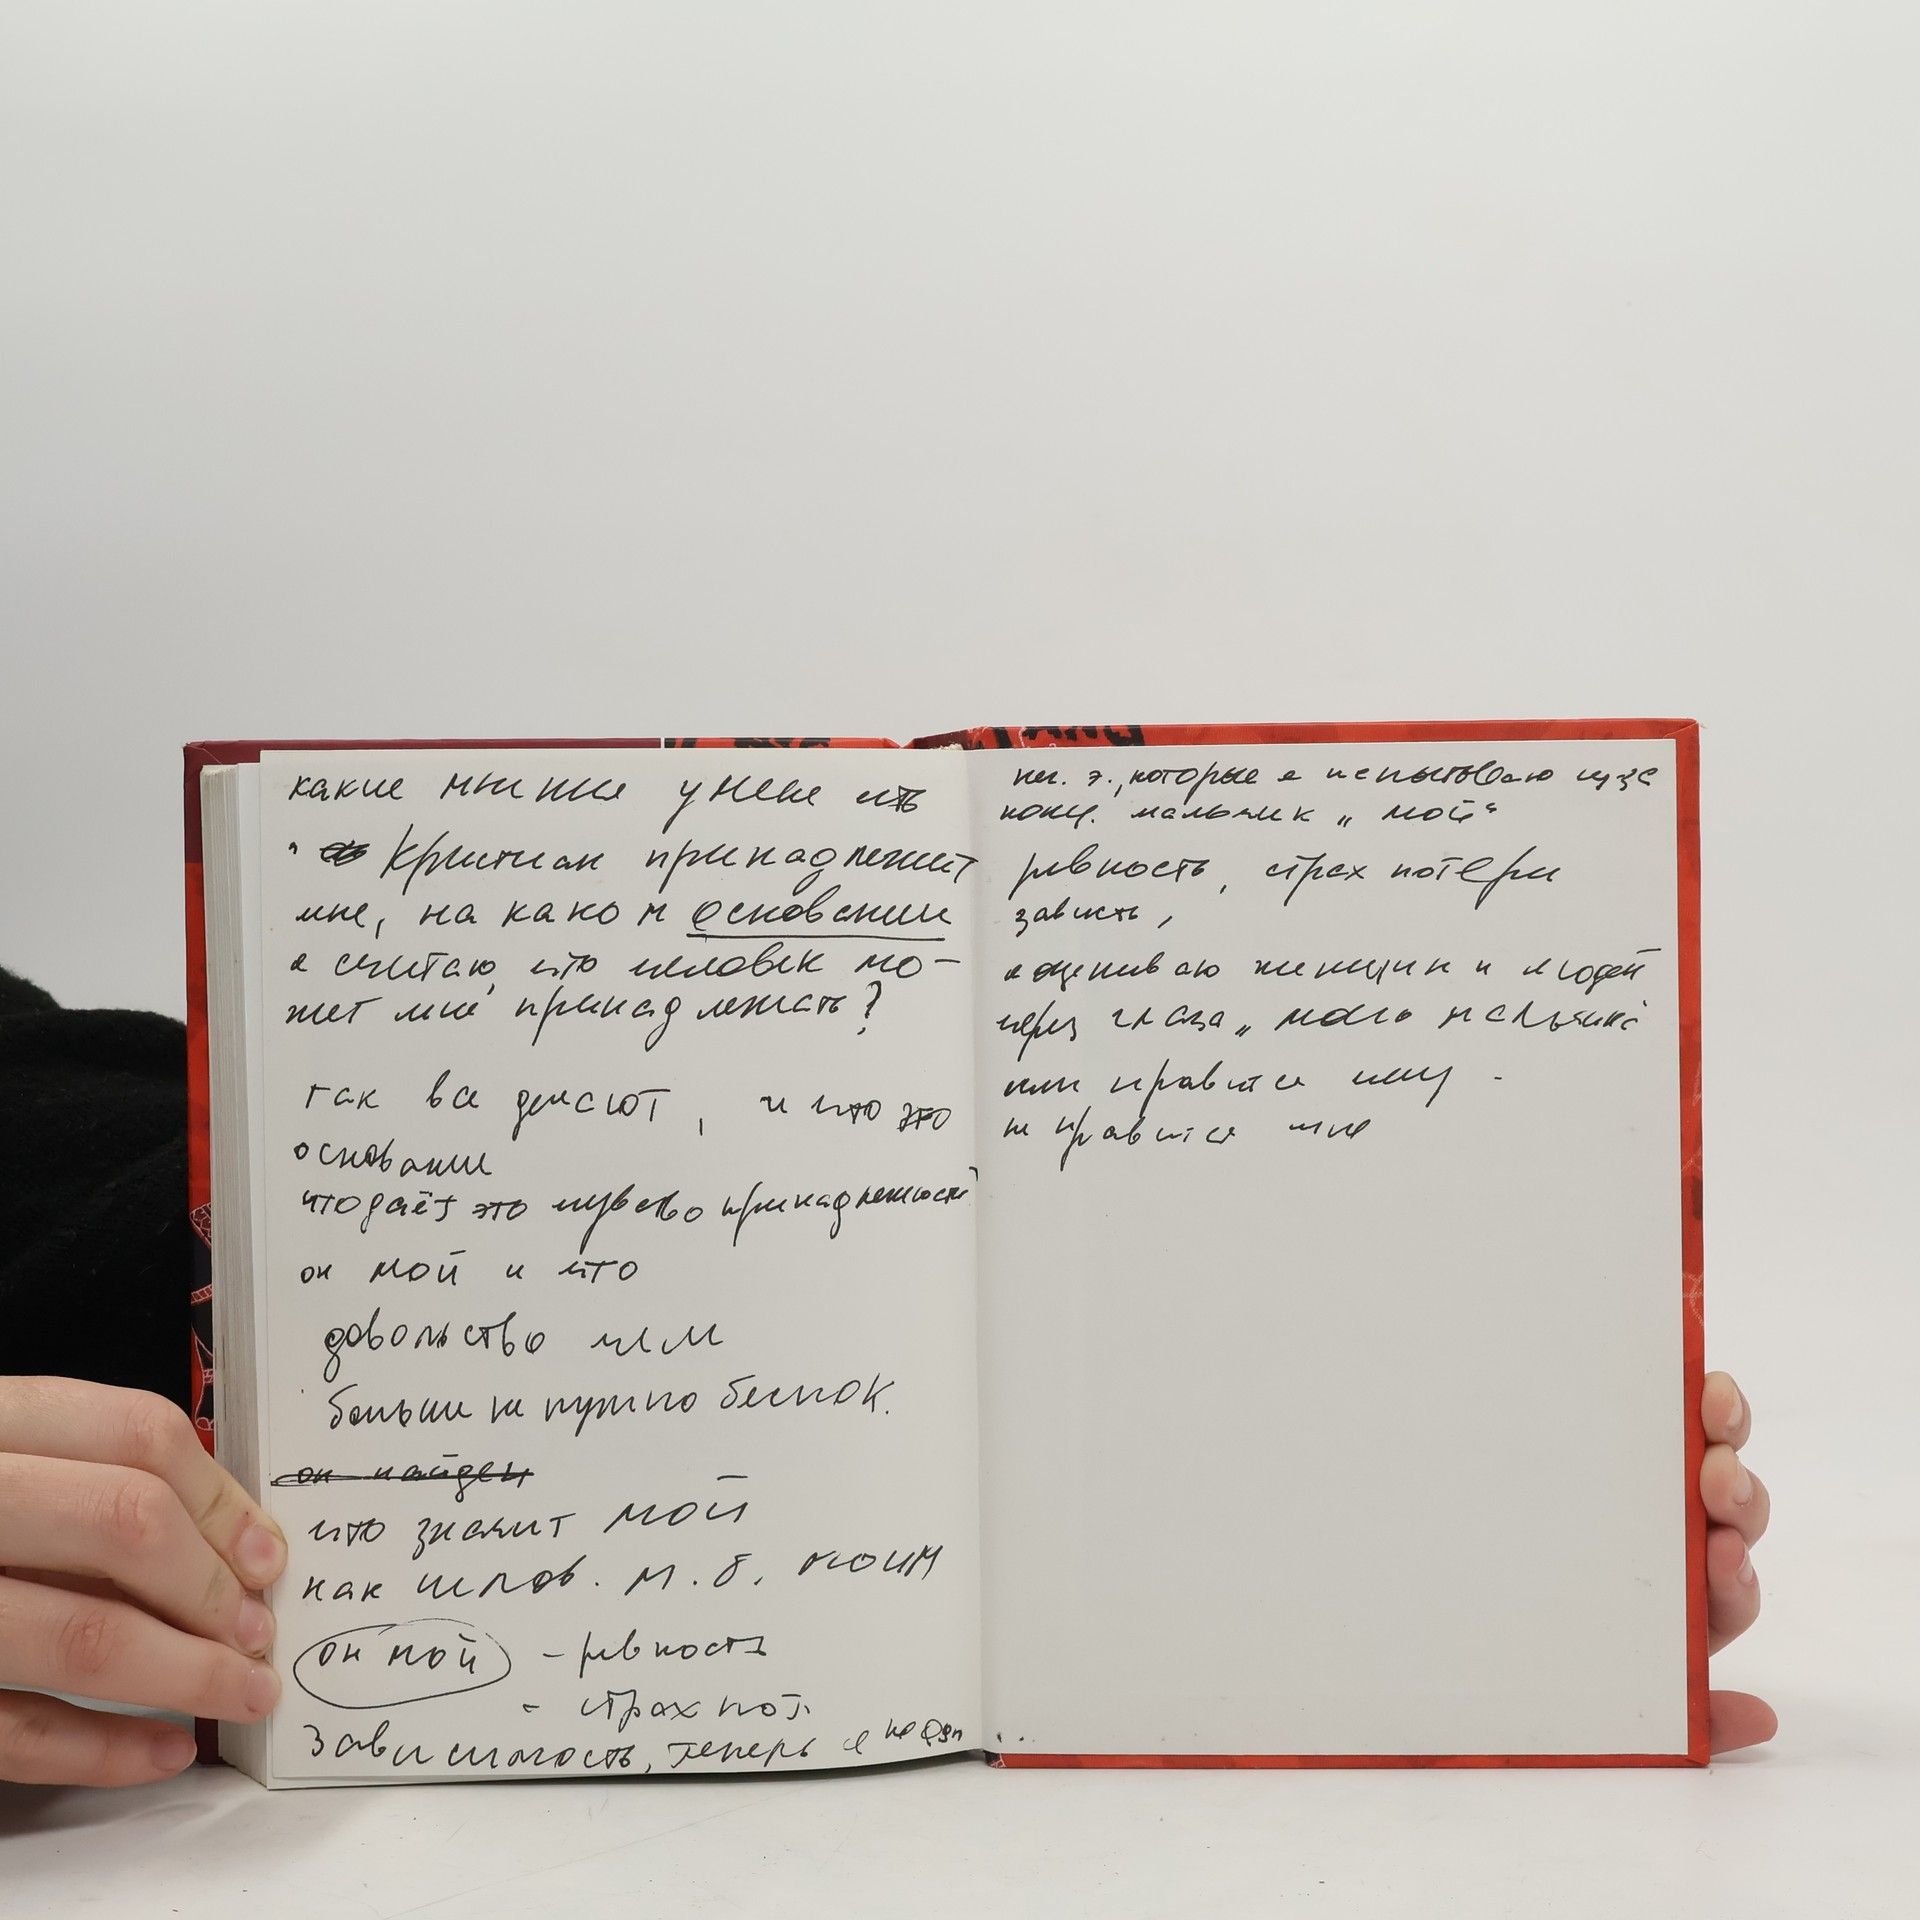 какие мнения у меня есть
" Кристиан принадлежит
мне, на каком основании
я считаю, что человек мо-
жет мне принадлежать?
так все делают, и что это
основание
что даёт это чувство принадлежности
он мой и что
довольство
больше не нужно беспок.
он найден
что значит мой
как челов. м. б. моим
он мой - ревность
- страх пот.
Зависимость, теперь я не один
нег. э., которые я испытываю из-за
конц. мальчик „мой“
ревность, страх потери
зависть,
я оцениваю женщин и людей
через глаза „моего мальчика“
или нравится ему -
не нравится мне